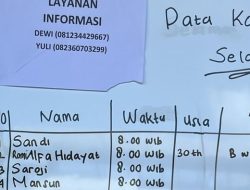 LAYANAN
INFORMASI
DEWI (081234429667)
YULI (082360703299)
Data Ka
Sela
Nama Waktu Usia
Sandi 8.00 WIB
2 Romi Alfa Hidayat 8.00 WIB 30 th B w
3 Saroji 8.00 WIB
4 Mansun 8.00 WIB